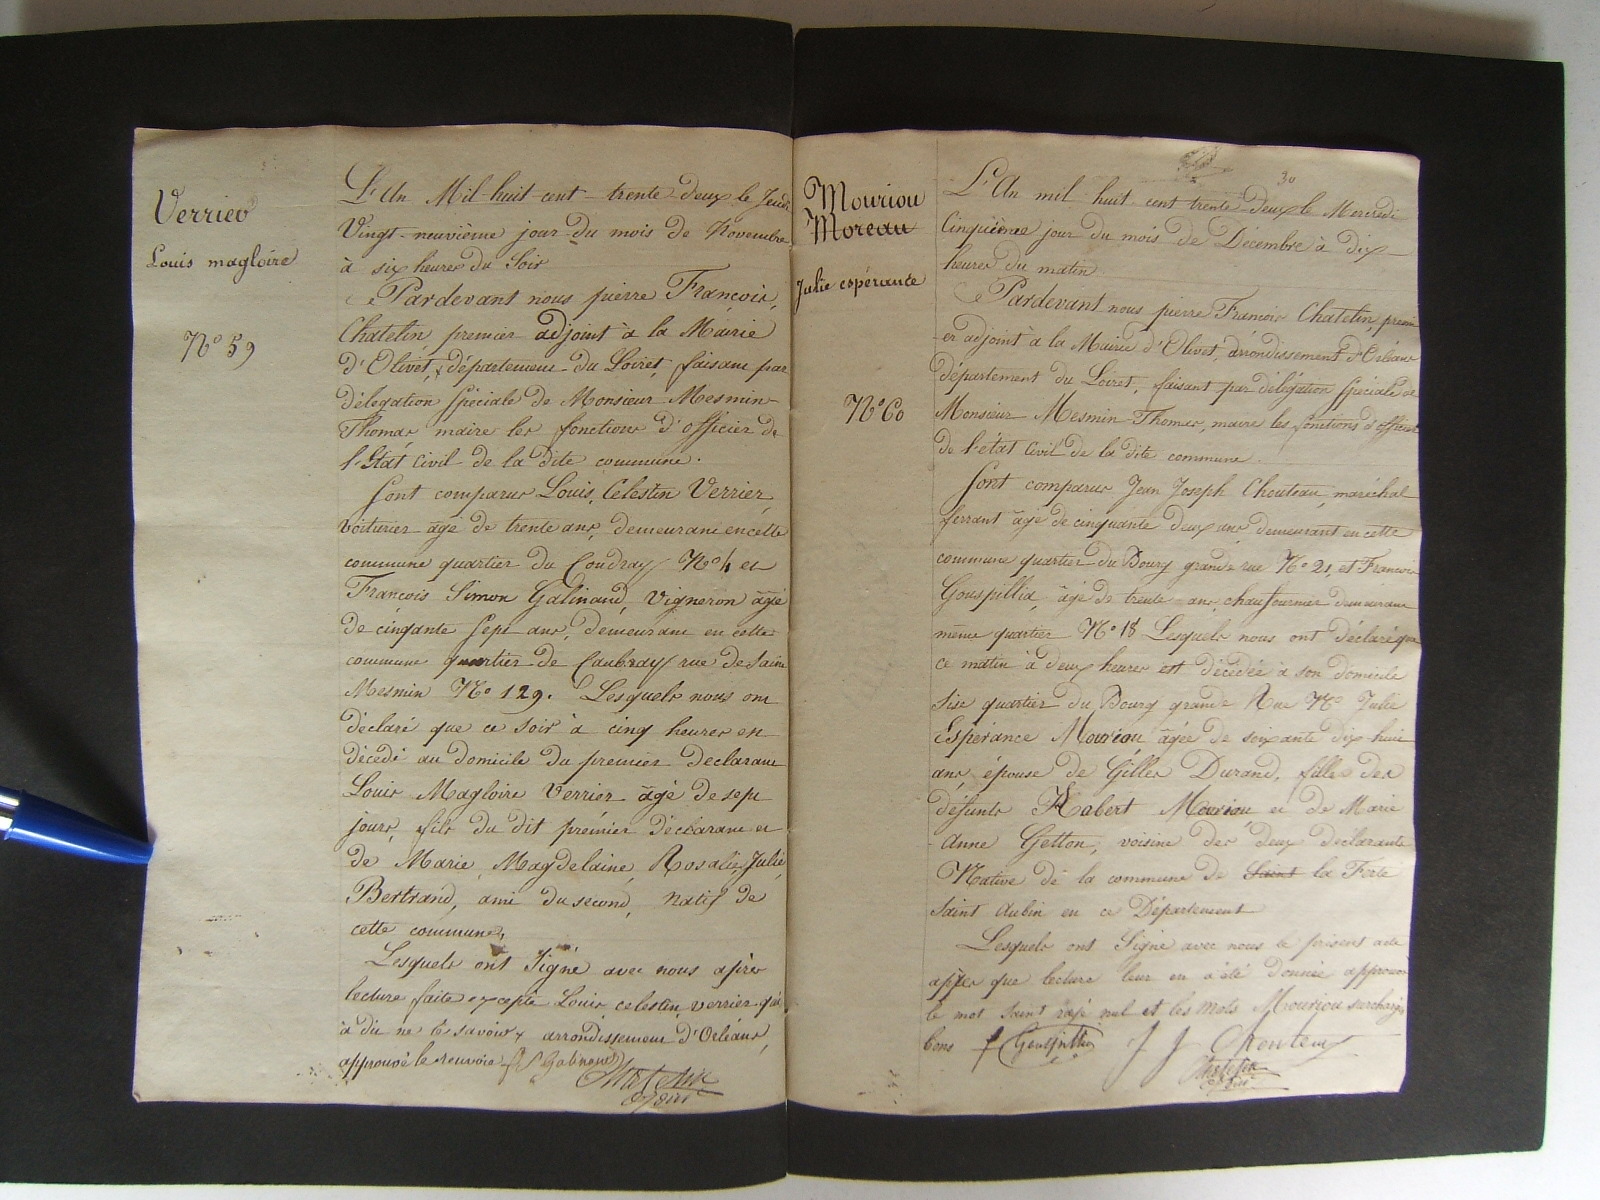 Verrier
Louis magloire
N° 59
L'An Mil-huit-cent-trente-deux le Jeudi
Vingt-neuvième jour du mois de Novembre
à six heures du soir
Pardevant nous pierre François
Chatelin premier adjoint à la Mairie
d'Olivet, x département du Loiret, faisant par
délégation spéciale de Monsieur Mesmin-
Thomas maire les fonctions d'officier de
l'état civil de la dite commune.
Sont comparus Louis, Celestin Verrier
voiturier âgé de trente ans, demeurant en cette
commune quartier du Coudray N° 4 et
François Simon Galinand, Vigneron âgé
de cinqante sept ans, demeurant en cette
commune quartier de Caubray rue de Saint
Mesmin N° 129. Lesquels nous ont
déclaré que ce soir à cinq heures est
décédé au domicile du premier declarant
Louis Magloire Verrier âgé de sept
jours, fils du dit premier déclarant et
de Marie, Magdelaine, Rosalie, Julie,
Bertrand, ami du second, natif de
cette commune,
Lesquels ont signé avec nous après
lecture faite excepté Louis, celestin, verrier qui
à dit ne le savoir x arrondissement d'Orléans,
approuvé le renvoie f S Galinand
Chatelin
adjoint
30
Mouriou
Moreau
Julie espérance
N° 60
L'An mil huit cent trente-deux le Mercredi
Cinquième jour du mois de Décembre à dix
heures du matin
Pardevant nous pierre François Chatelin premi
er adjoint à la Mairie d'Olivet, arrondissement d'Orléans
département du Loiret, faisant par délégation spéciale de
Monsieur Mesmin-Thomas, maire les fonctions d'officier
de l'état civil de la dite commune
Sont comparus Jean Joseph Chouteau, maréchal
ferrant âgé de cinquante deux ans demeurant en cette
commune quartier du Bourg grande rue N° 21, et François
Gouspillia, âgé de trente ans, chaufournier demeurant
même quartier N° 18 Lesquels nous ont déclaré que
ce matin à deux heures est décédée à son domicile
sise quartier du Bourg grande Rue N° Julie
Espérance Mouriou âgée de soixante dix-huit
ans, épouse de Gilles Durand, fille des
défunts Rabert Mouriou et de Marie
Anne Getton, voisine des deux déclarants
Native de la commune de Saint la Ferté
Saint Aubin en ce Département
Lesquels ont signé avec nous le présent acte
après que lecture leur en a été donnée approuvé
le mot Saint rayé nul et les mots Mouriou surchargés
bons f Gouspillia J J Chouteau
Chatelin
adjoint